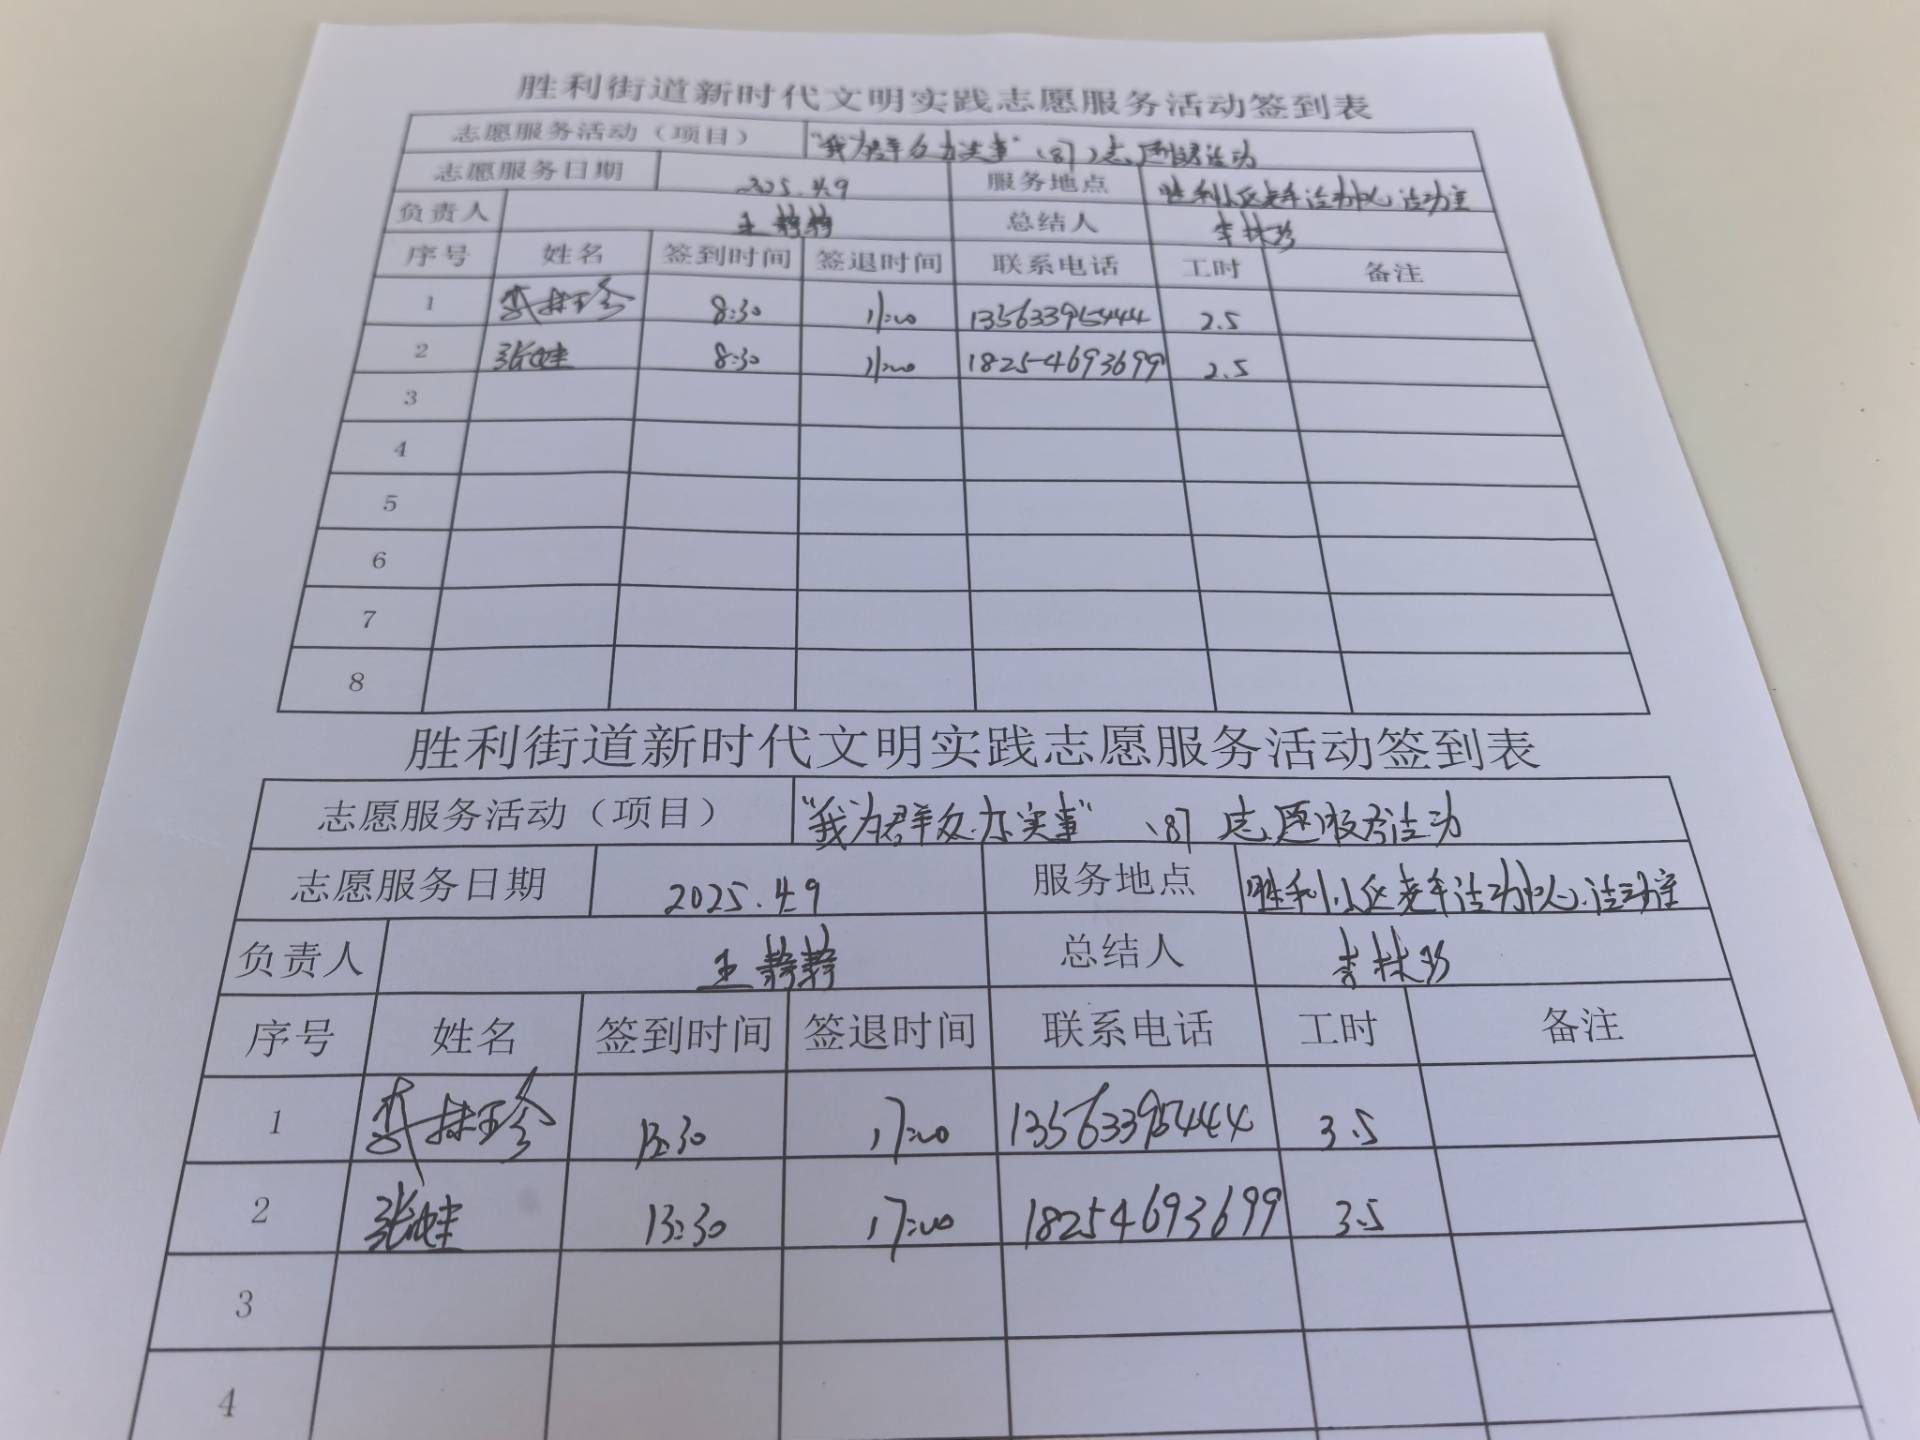 胜利街道新时代文明实践志愿服务活动签到表
志愿服务活动（项目） "我为群众办实事" 志愿服务活动
志愿服务日期 2025.4.9 服务地点 胜利小区老年活动中心活动室
负责人 王静静 总结人 李林珍
序号 姓名 签到时间 签退时间 联系电话 工时 备注
1 李林珍 8:30 11:00 13563395444 2.5
2 张 8:30 11:00 18254693699 2.5
3
4
5
6
7
8
胜利街道新时代文明实践志愿服务活动签到表
志愿服务活动（项目） "我为群众办实事" 志愿服务活动
志愿服务日期 2025.4.9 服务地点 胜利小区老年活动中心活动室
负责人 王静静 总结人 李林珍
序号 姓名 签到时间 签退时间 联系电话 工时 备注
1 李林珍 13:30 17:00 13563395444 3.5
2 张 13:30 17:00 18254693699 3.5
3
4